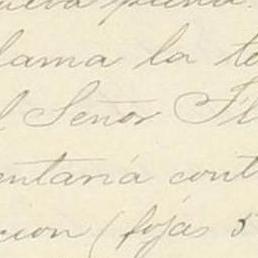 nueva piena.
lama la to
l Señor Fl
entaria cont
cion (fojas 5